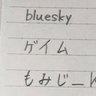 bluesky
ゲイム
もみじー